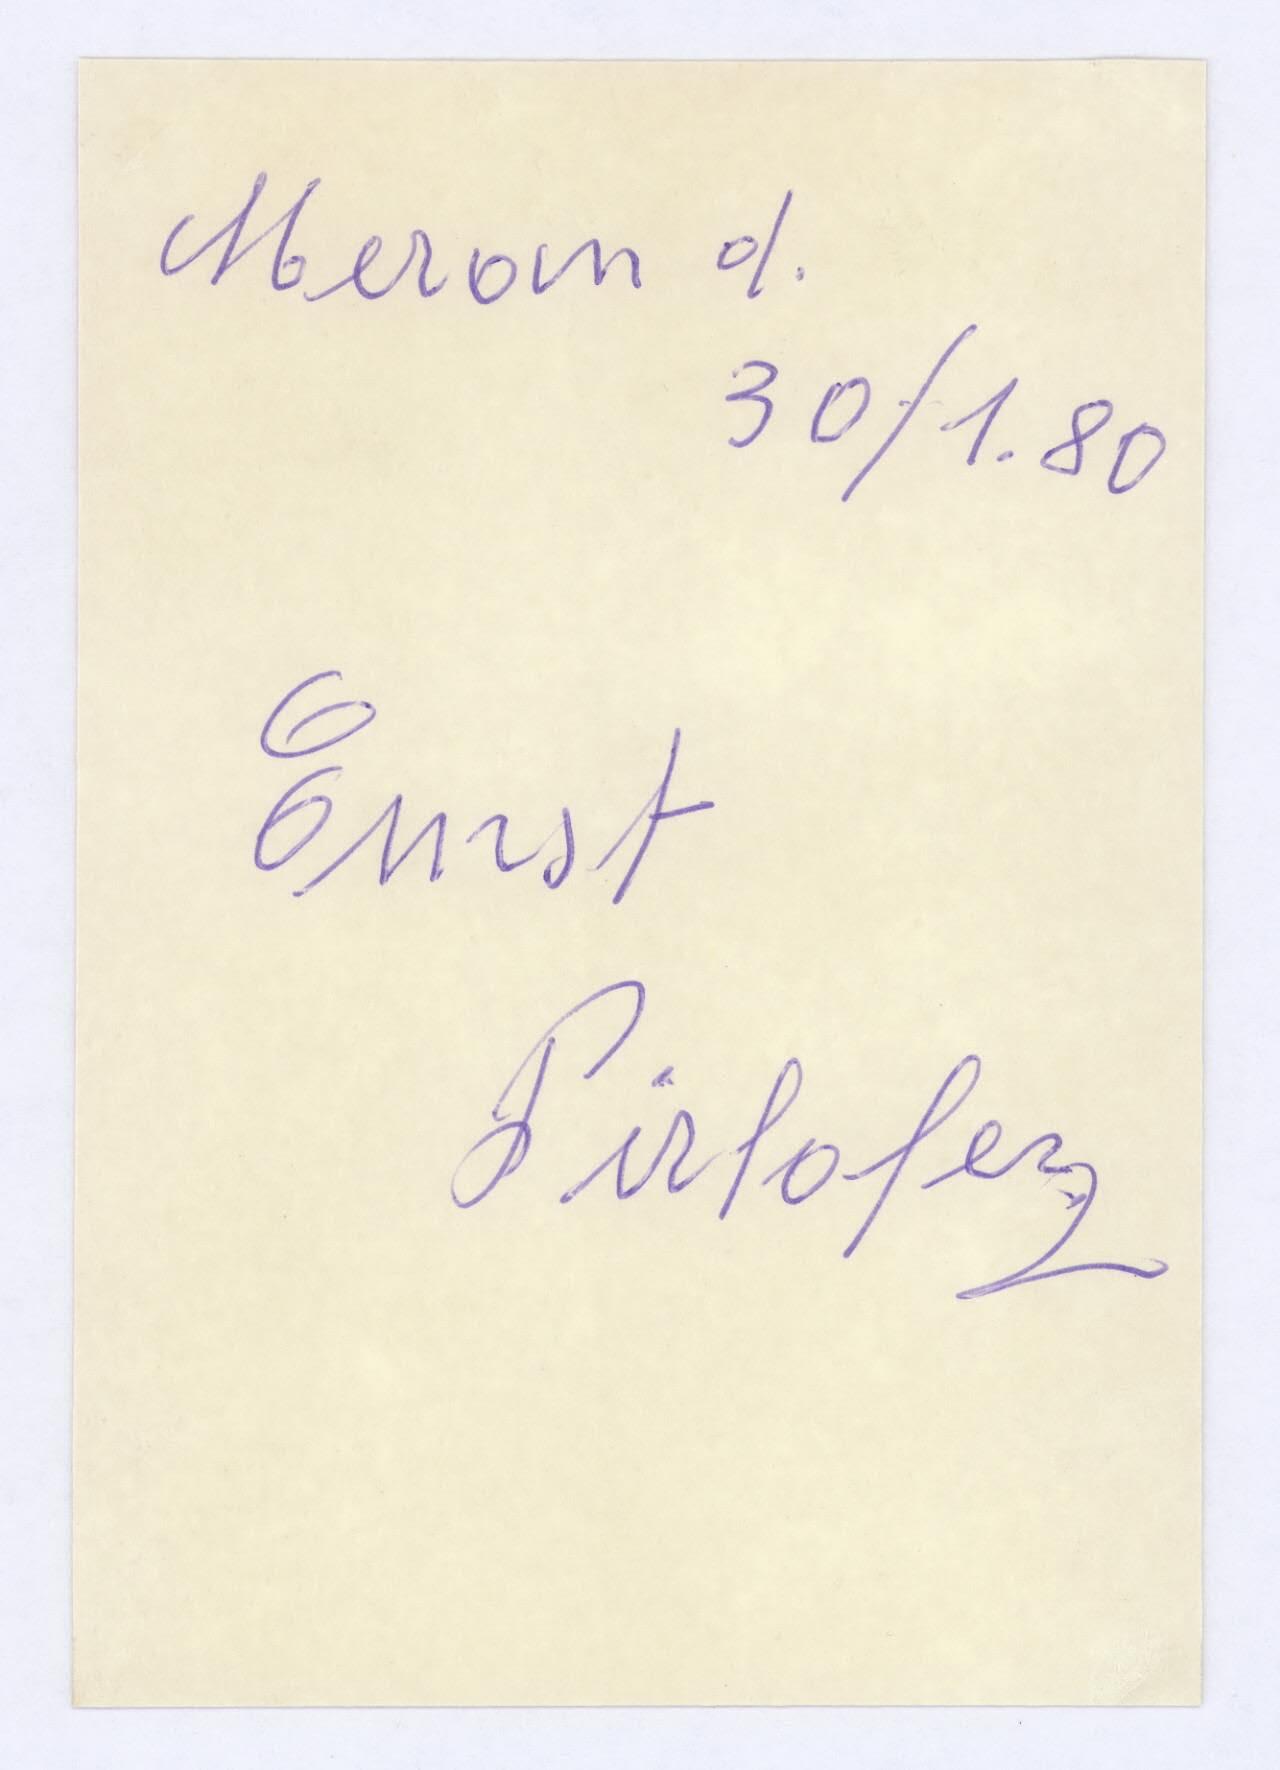 Meran d.
30/1.80
Ernst